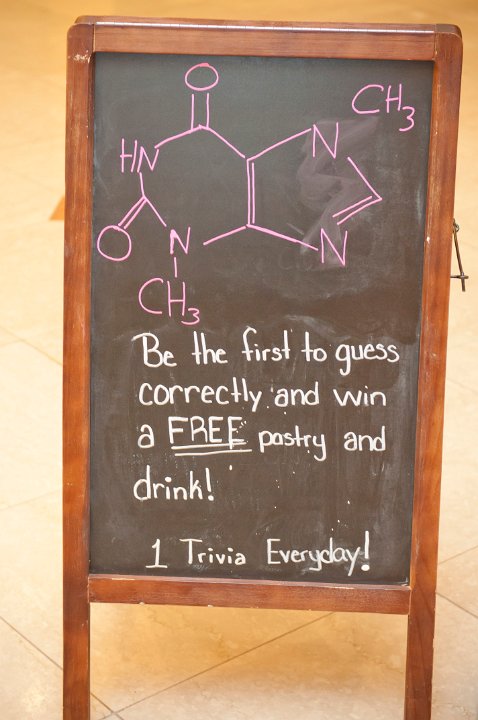 O
CH3
HN
N
O
N
N
CH3
Be the first to guess
correctly and win
a FREE pastry and
drink!
1 Trivia Everyday!